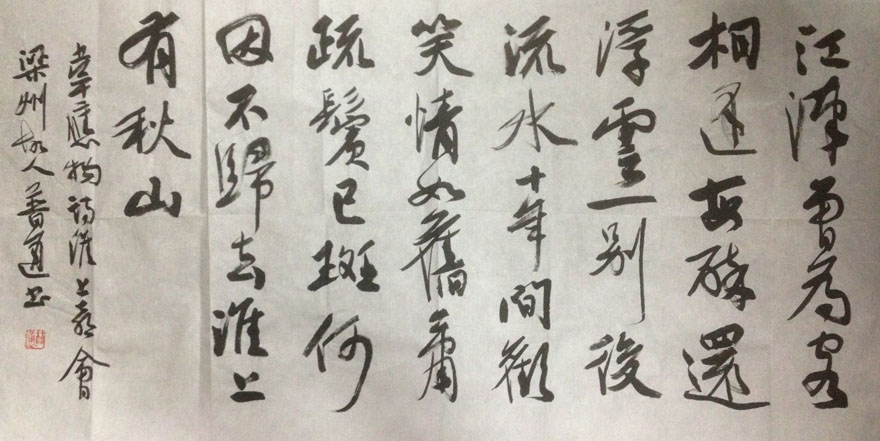 江漢曾為客
相逢每醉還
浮雲一別後
流水十年間歡
笑情如舊蕭
疏鬢已斑何
因不歸去淮上
有秋山
韋應物詩淮上喜會
梁州故人普书